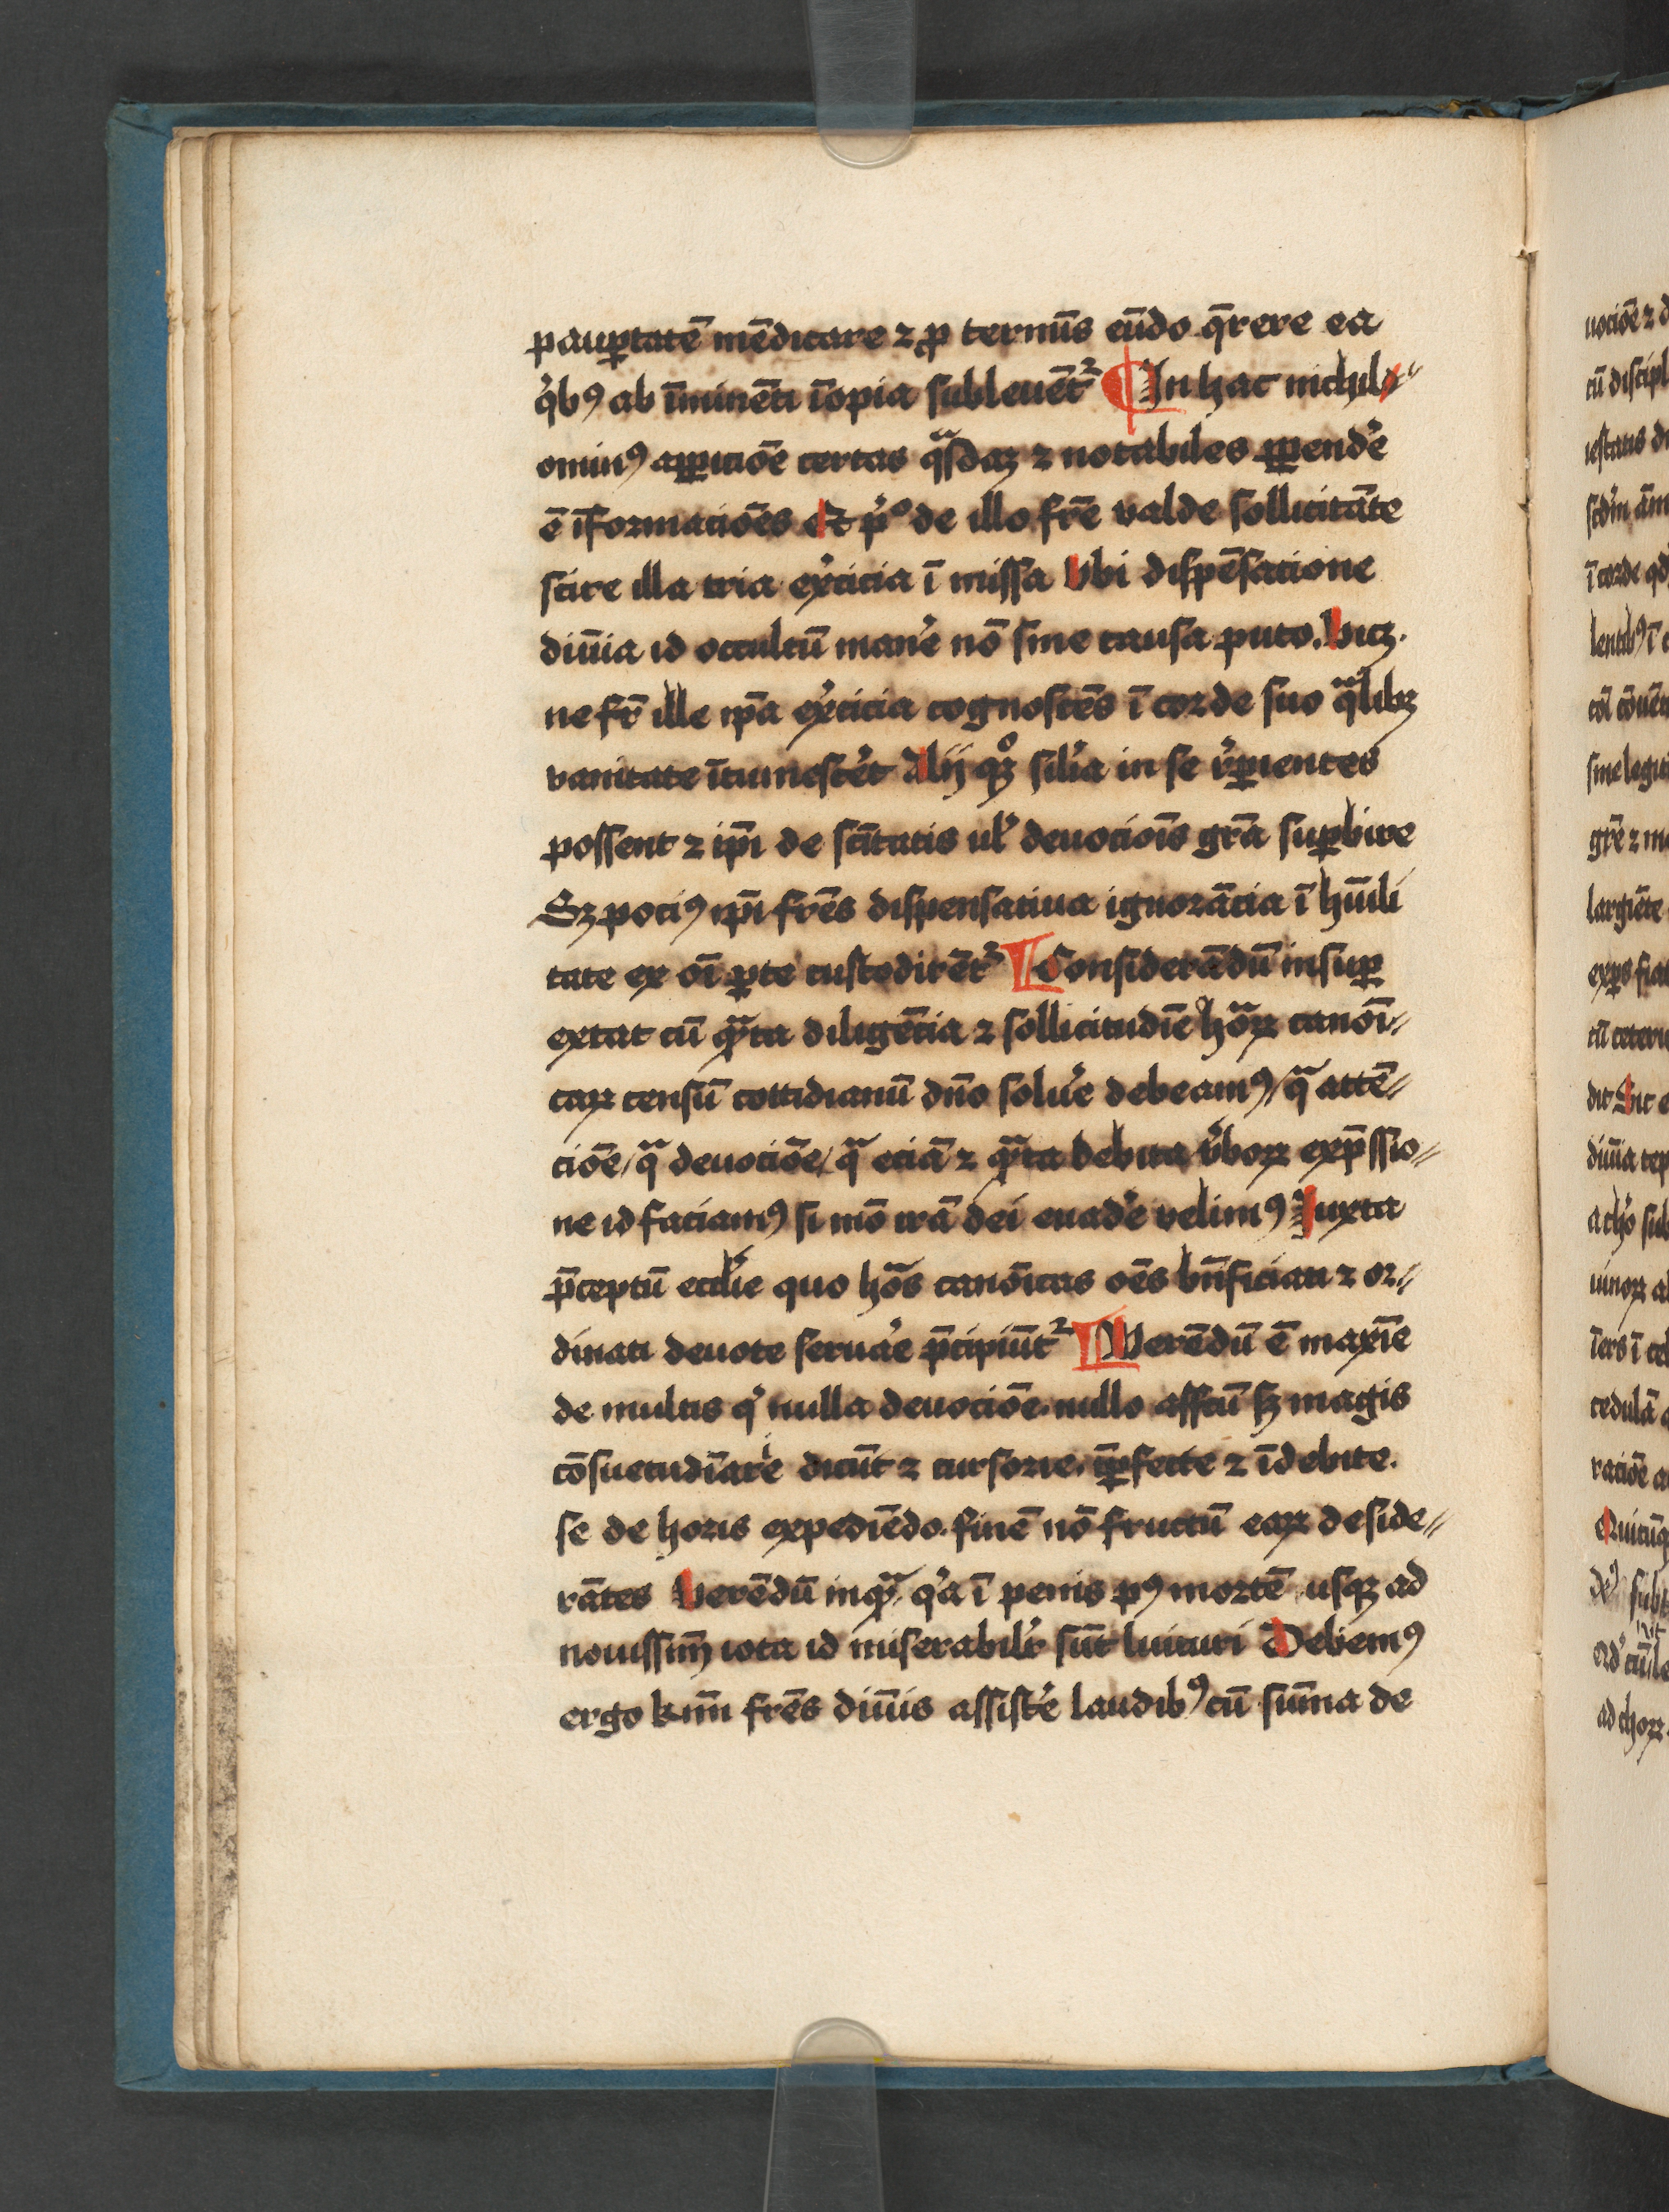 pauꝑtatē mēdicare ⁊ ꝓ termīs eūdo q̄rere ea
qͥbꝰ ab īminēti īopia subleuēt᷑ ¶ In hac nichil⸗
ominꝰ apꝑicōe certas qᷓsdaꝫ ⁊ notabiles ꝑpendͤe
ē īformacōēs Et pͥº de illo fr̄e valde sollicitāte
scire illa tria ex̓cicia ī missa Vbi dispēsatione
diuīa id occultū man̓e nō sine causa puto. Vicꝫ.
ne fr̄ ille ip̄a ex̓cicia cognoscēs ī corde suo qᷓlibꝫ
vanitate ītumesc̓et Alij qͦꝫ sil̓ia in se r̓ꝑientes
possent ⁊ ip̄i de sc̄itatis ul̓ deuocōis gr̄a suꝑbire
Sꝫ pociꝰ ip̄i fr̄es dispensatiua ignorācia ī hūili
tate ex oī ꝑte custodirēt᷑ ¶ Considerādū insuꝑ
extat cū qᷓta diligēcia ⁊ sollicitudīe hōꝝ canoī⸗
caꝝ censū cottidianū dn̄o solu̓e debeamꝰ / qᷓ attē⸗
ciōe / qᷓ deuociōe / qᷓ eciā ⁊ qᷓta debita v̓boꝝ exp̄ssio⸗
ne id faciamꝰ si mō irā dei euad̓e velimꝰ Iuxta
p̄ceptū eccl̓ie quo hōs canōicas oēs bn̄ficiati ⁊ or⸗
dinati deuote serua̓e p̄cipiūt᷑ ¶ Verēdū ē maxīe
de multis qͥ nulla deuociōe. nullo affc̄u sꝫ magis
cōsuetudīarie dicūt ⁊ cursorie. īꝑfecte ⁊ īdebite.
se de horis expediēdo. finē nō fructū eaꝝ deside⸗
rātes Verēdū inqᷓ. qͥa ī penis pꝰ mortē usqꝫ ad
nouissim̄ iota id miserabilr̓ sūt luituri Debemꝰ
ergo k̄mi fr̄es diuīis assist̓e laudibꝰ cū sūma de